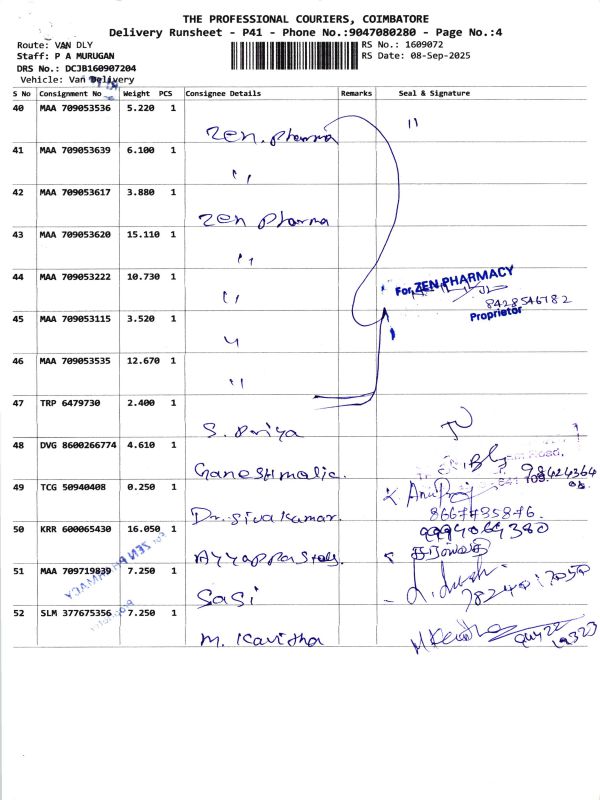 THE PROFESSIONAL COURIERS, COIMBATORE
Delivery Runsheet - P41 - Phone No.:9047080280 - Page No.:4
Route: VAN DLY
RS No.: 1609072
Staff: P A MURUGAN
RS Date: 08-Sep-2025
DRS No.: DCJB160907204
Vehicle: Van Delivery
S No Consignment No Weight PCS Consignee Details Remarks Seal & Signature
40 MAA 709053536 5.220 1 Zen. Pharma "
41 MAA 709053639 6.100 1 "
42 MAA 709053617 3.880 1 Zen Pharma
43 MAA 709053620 15.110 1 "
44 MAA 709053222 10.730 1 "
For ZEN PHARMACY
8428546782
Proprietor
45 MAA 709053115 3.520 1 "
46 MAA 709053535 12.670 1 "
47 TRP 6479730 2.400 1 S. Priya
48 DVG 8600266774 4.610 1 Ganeshmalic.
Road,
641 109.
49 TCG 50940408 0.250 1 Dr. Sivakumar.
50 KRR 600065430 16.050 1 Ayyappa
9994064380
51 MAA 709719839 7.250 1 Sasi
For ZEN PHARMACY
52 SLM 377675356 7.250 1 M. Kavitha
Proprietor